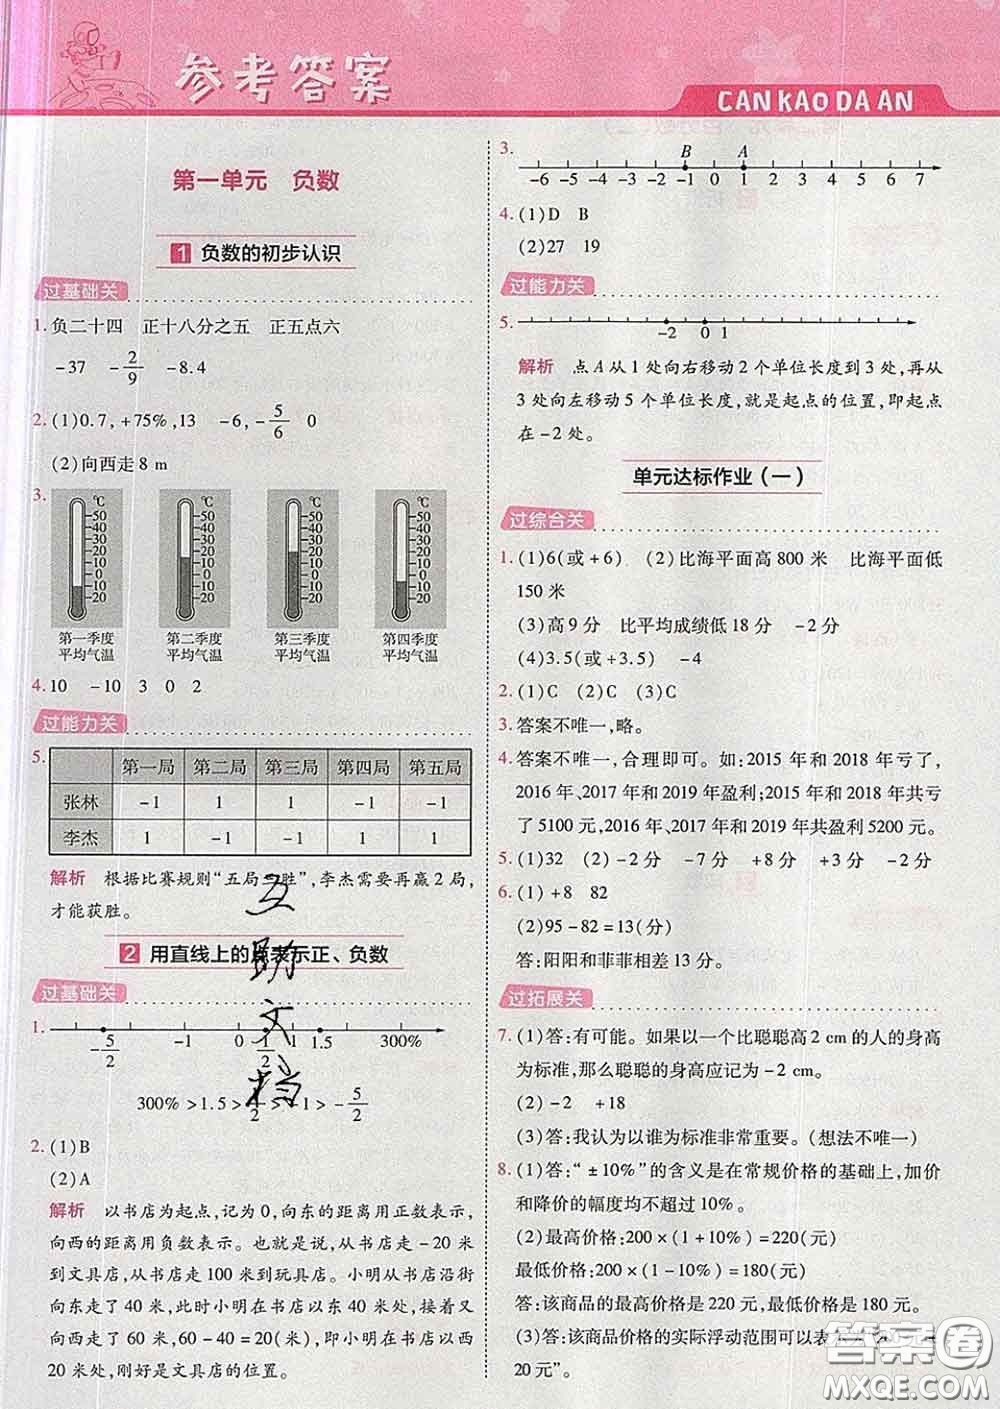 参考答案
CANKAODAAN
第一单元 负数
1 负数的初步认识
过基础关
1. 负二十四 正十八分之五 正五点六
-37 -2/9 -8.4
2. (1)0.7,+75%,13 -6,-5/6 0
(2)向西走8 m
3.
℃ ℃ ℃ ℃
50 50 50 50
40 40 40 40
30 30 30 30
20 20 20 20
10 10 10 10
0 0 0 0
10 10 10 10
20 20 20 20
第一季度 第二季度 第三季度 第四季度
平均气温 平均气温 平均气温 平均气温
4. 10 -10 3 0 2
过能力关
5.
第一局 第二局 第三局 第四局 第五局
张林 -1 1 1 -1 -1
李杰 1 -1 -1 1 1
解析 根据比赛规则“五局三胜”,李杰需要再赢2局,
才能获胜。
2 用直线上的点表示正、负数
过基础关
1.
-5/2 -1 0 1/2 1 1.5 300%
300%>1.5>1/2>-1>-5/2
2. (1)B
(2)A
解析 以书店为起点,记为0,向东的距离用正数表示,
向西的距离用负数表示。也就是说,从书店走-20米
到文具店,从书店走100米到玩具店。小明从书店沿街
向东走了40米,此时小明在书店以东40米处,接着又
向西走了60米,60-40=20(米),即小明在书店以西
20米处,刚好是文具店的位置。
互助文档
3.
B A
-6 -5 -4 -3 -2 -1 0 1 2 3 4 5 6 7
4. (1)D B
(2)27 19
过能力关
5.
-2 0 1
解析 点A从1处向右移动2个单位长度到3处,再从
3处向左移动5个单位长度,就是起点的位置,即起点
在-2处。
单元达标作业(一)
过综合关
1. (1)6(或+6) (2)比海平面高800米 比海平面低
150米
(3)高9分 比平均成绩低18分 -2分
(4)3.5(或+3.5) -4
2. (1)C (2)C (3)C
3. 答案不唯一,略。
4. 答案不唯一,合理即可。如:2015年和2018年亏了,
2016年、2017年和2019年盈利;2015年和2018年共亏
了5100元,2016年、2017年和2019年共盈利5200元。
5. (1)32 (2)-2分 -7分 +8分 +3分 -2分
6. (1)+8 82
(2)95-82=13(分)
答:阳阳和菲菲相差13分。
过拓展关
7. (1)答:有可能。如果以一个比聪聪高2 cm的人的身高
为标准,那么聪聪的身高应记为-2 cm。
(2)-2 +18
(3)答:我认为以谁为标准非常重要。(想法不唯一)
8. (1)答:“±10%”的含义是在常规价格的基础上,加价
和降价的幅度均不超过10%。
(2)最高价格:200×(1+10%)=220(元)
最低价格:200×(1-10%)=180(元)
答:该商品的最高价格是220元,最低价格是180元。
(3)答:该商品价格的实际浮动范围可以表
20元”。
答案圈
MXQE.COM